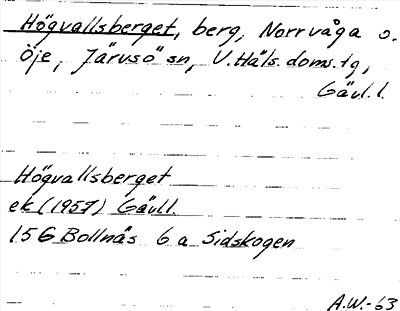 Högvallsberget, berg, Norrvåga o.
Öje, Järvsö sn, V. Häls. doms. tg,
Gävl. l.
Högvallsberget
ek (1957) Gävl l.
15G Bollnäs 6 a Sidskogen
A.W.-63